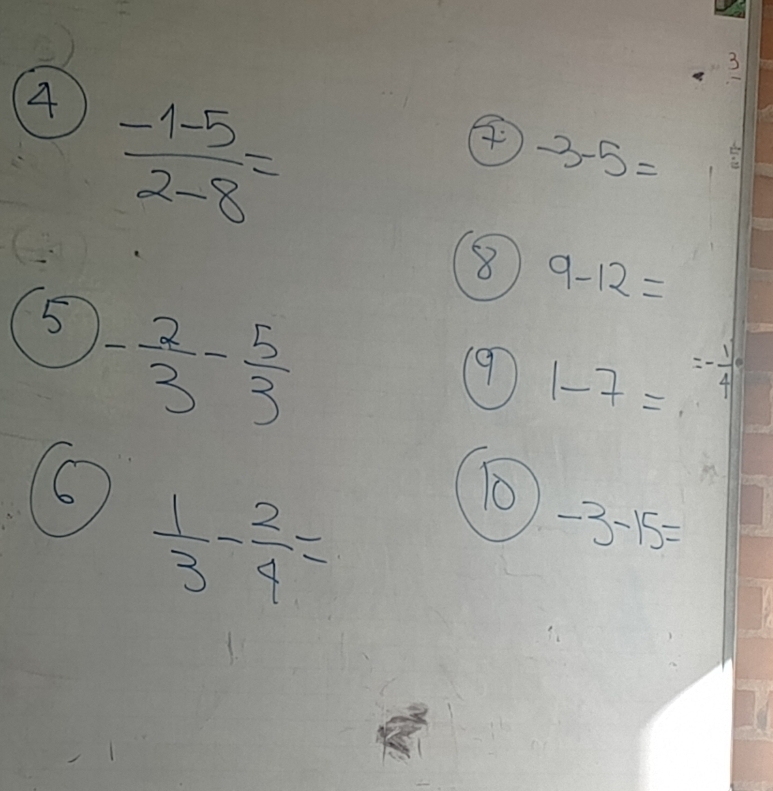 ④ (-1-5)/(2-8) =
⑤ -2/3 - 5/3
⑥ 1/3 - 2/4 =
⑦ -3-5=
⑧ 9-12=
⑨ 1-7=
⑩ -3-15=
3
=-1/4